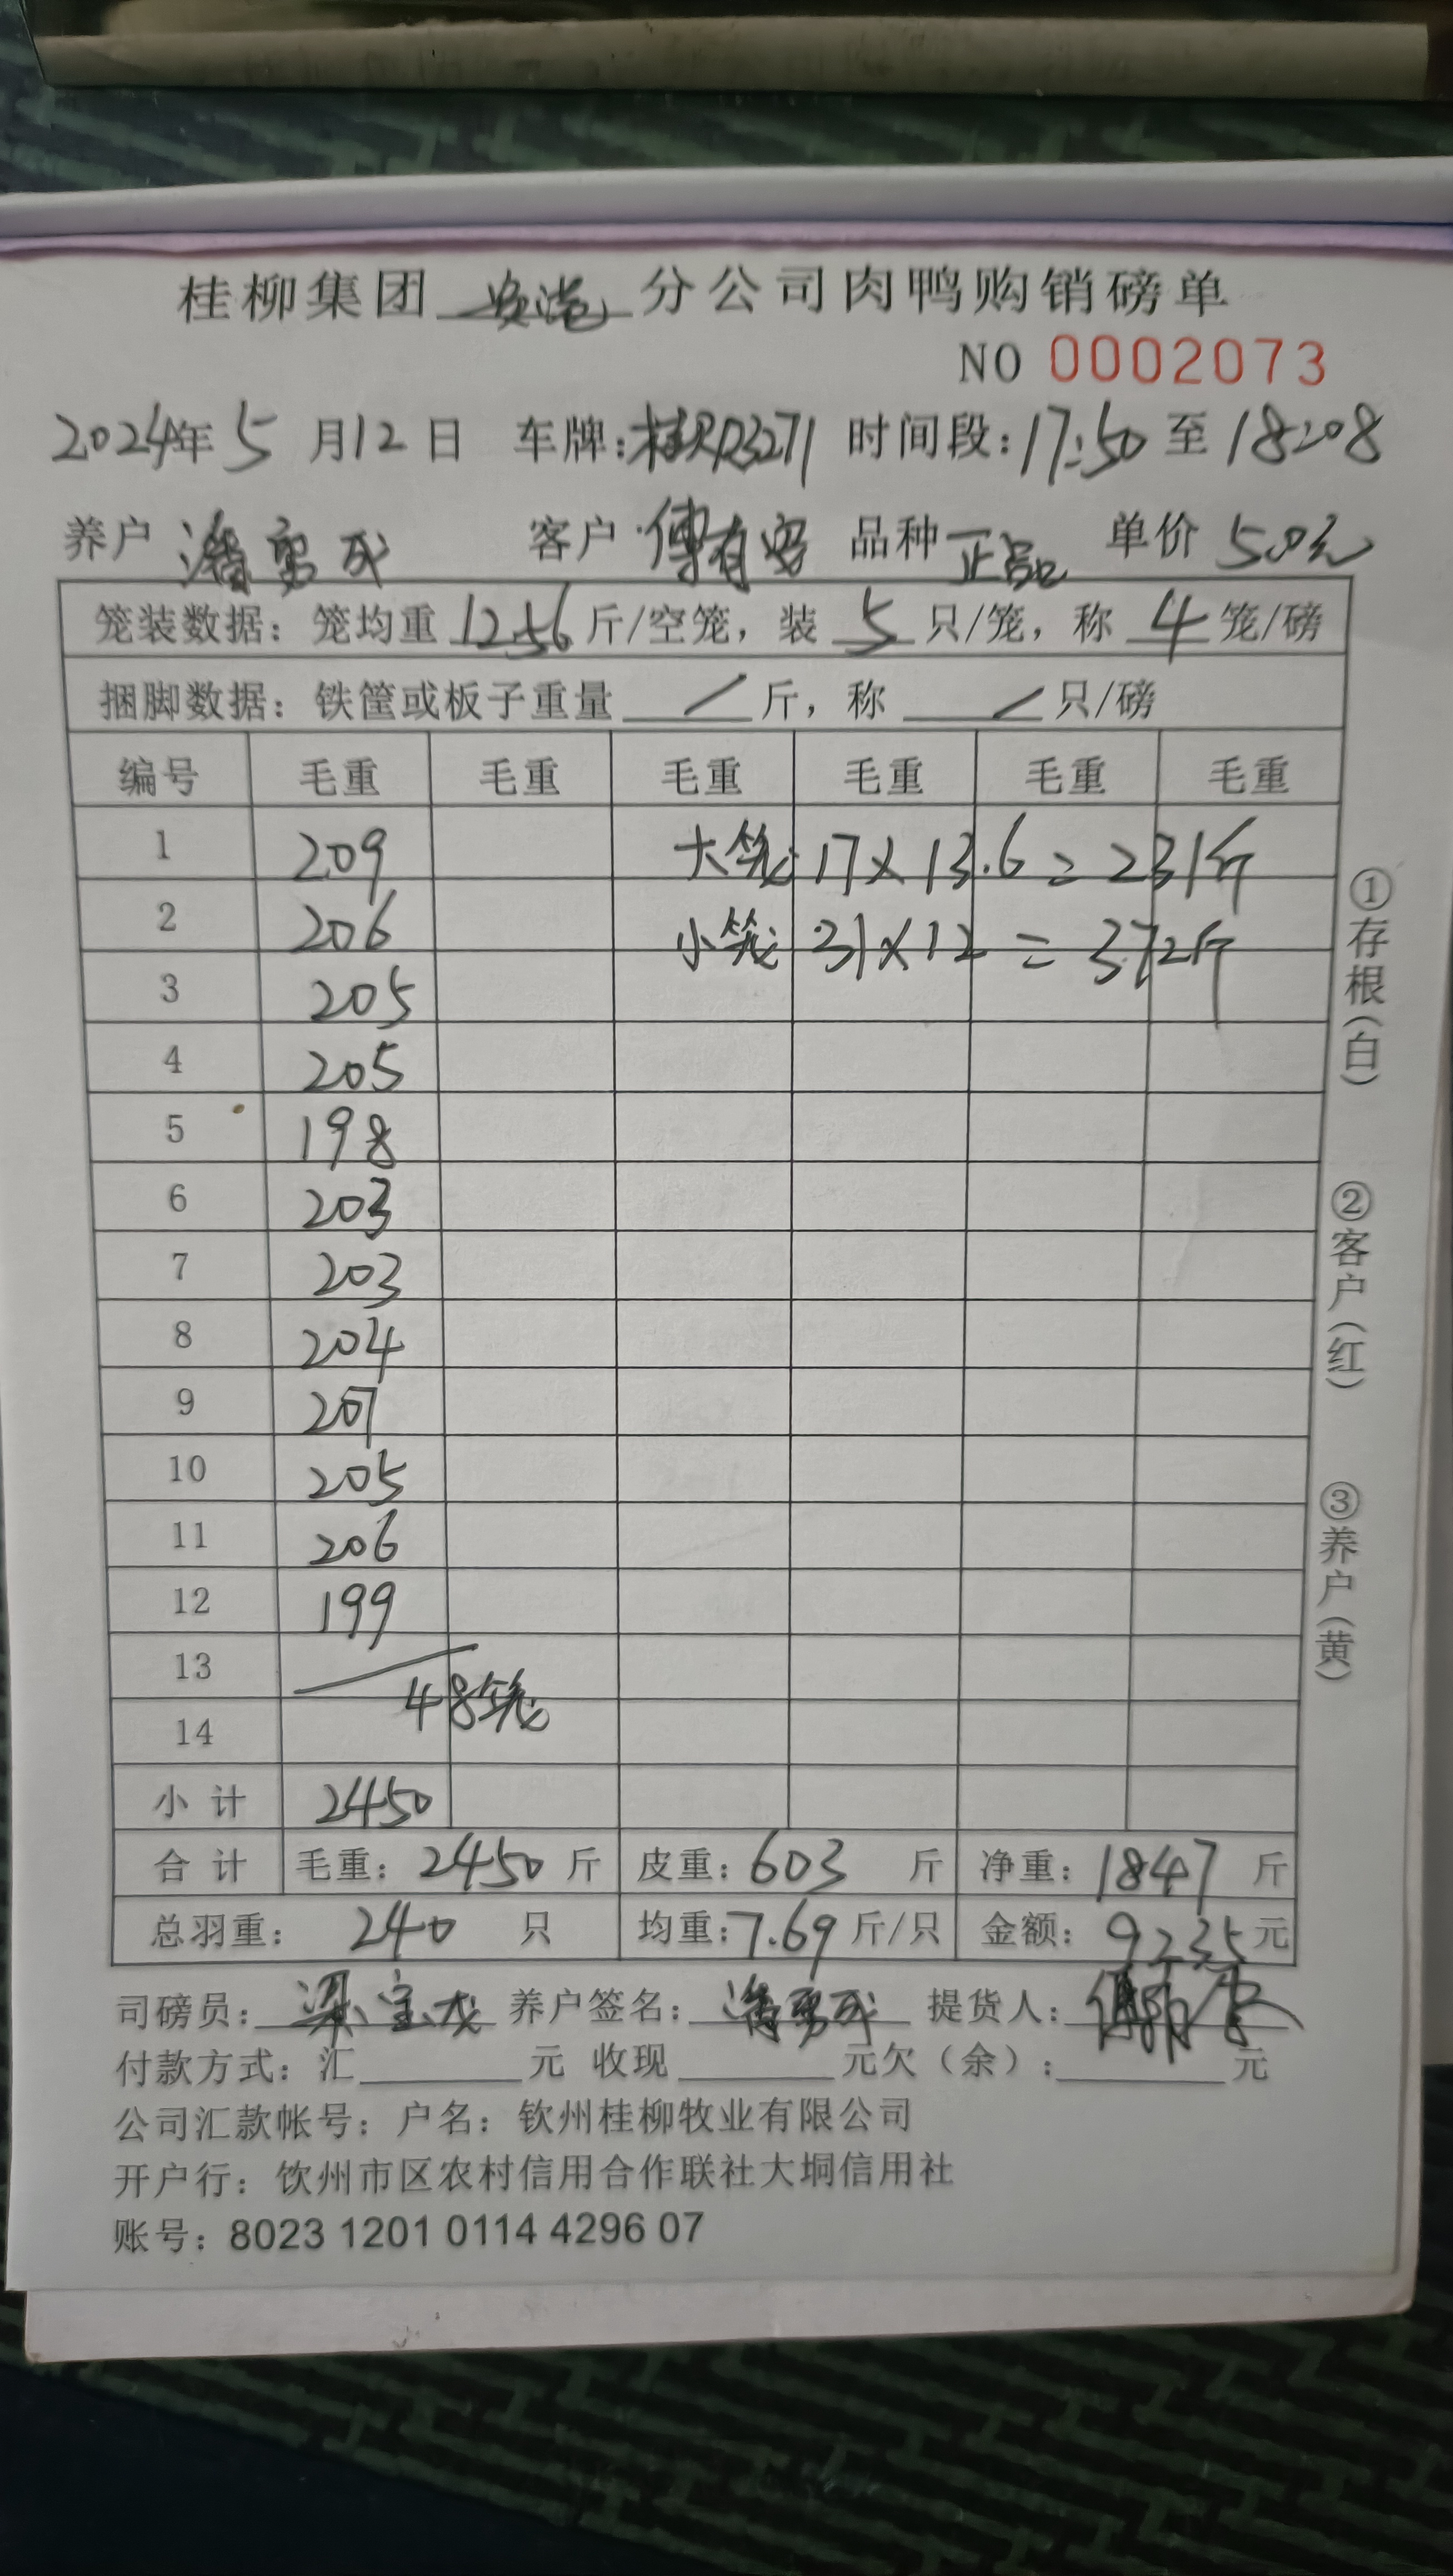 桂柳集团 分公司肉鸭购销磅单
NO 0002073
2024年5月12日 车牌: 时间段:17:50至18:08
养户 潘勇成 客户 傅有安 品种 正品 单价 5.0元
笼装数据: 笼均重 12.56 斤/空笼, 装 5 只/笼, 称 4 笼/磅
捆脚数据: 铁筐或板子重量 / 斤, 称 / 只/磅
编号 毛重 毛重 毛重 毛重 毛重 毛重
1 209 大笼 17×13.6=231斤
2 206 小笼 31×12=372斤
3 205
4 205
5 198
6 203
7 203
8 204
9 207
10 205
11 206
12 199
13
48笼
14
小计 2450
合计 毛重: 2450 斤 皮重: 603 斤 净重: 1847 斤
总羽重: 240 只 均重: 7.69 斤/只 金额: 9235 元
司磅员: 梁宝龙 养户签名: 潘勇成 提货人:
付款方式: 汇 元 收现 元欠(余): 元
公司汇款帐号: 户名: 钦州桂柳牧业有限公司
开户行: 饮州市区农村信用合作联社大垌信用社
账号: 8023 1201 0114 4296 07
①存根(白)
②客户(红)
③养户(黄)